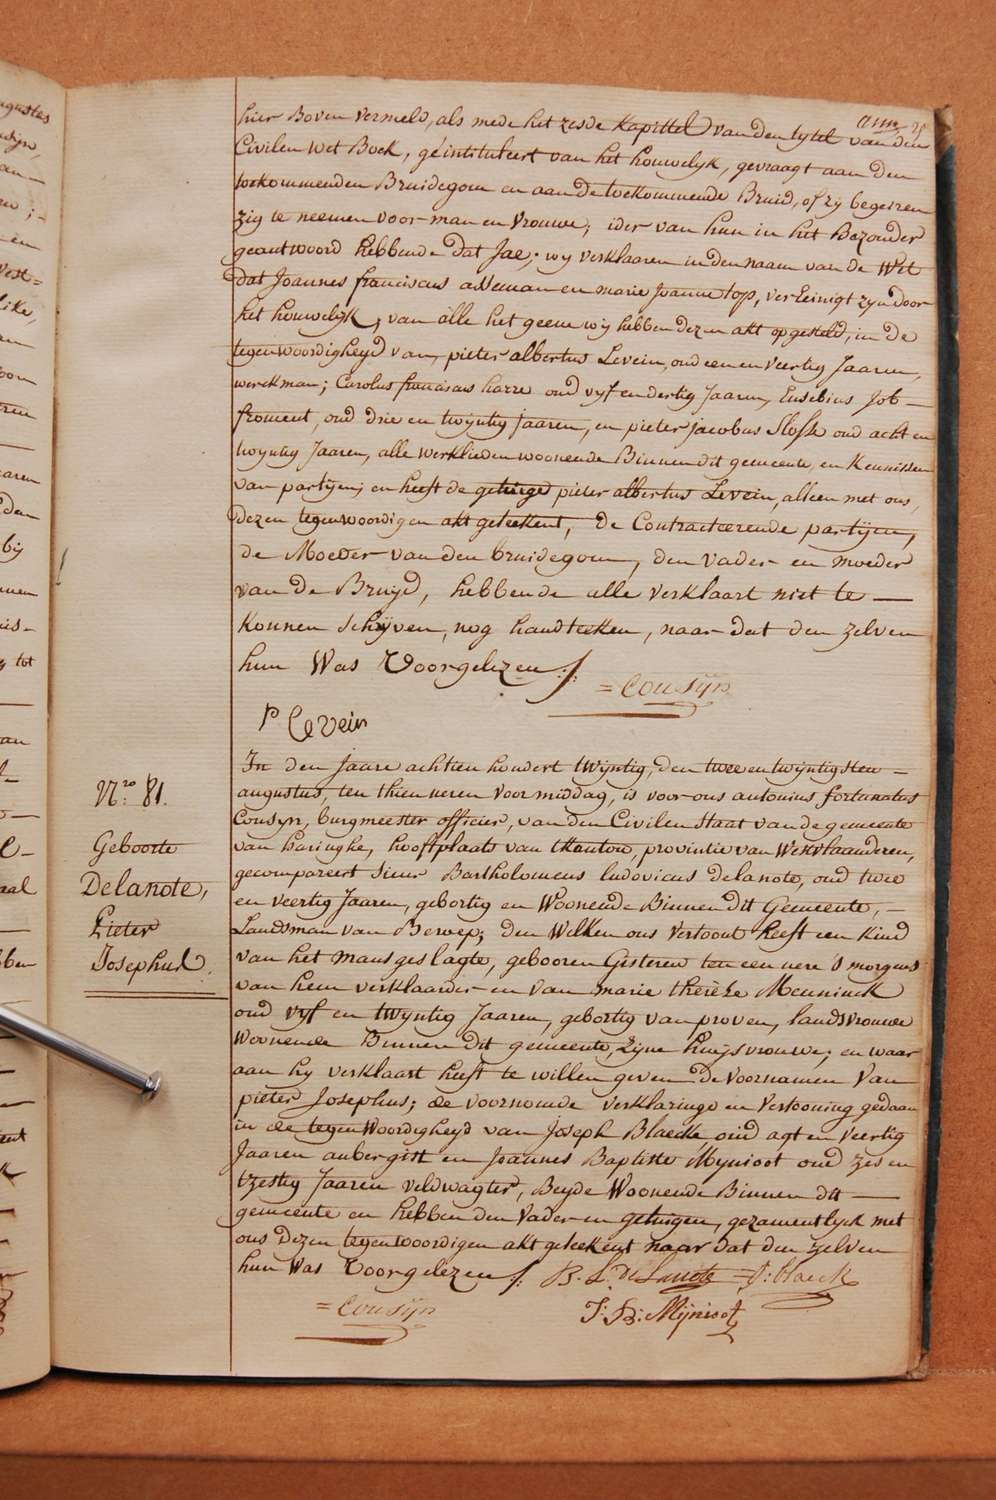 hier Boven vermeld, als mede het zesde kapittel van den tytel van den
Civilen Wet Boek, geïntituleert van het houwelyk, gevraagt aan den
toekommenden Bruidegom en aan de toekommende Bruid, of zy begeiren
zig te neemen voor man en vrouwe; ider van hun in het Bezonder
geantwoord hebbende dat Jae; wy verklaaren in den naam van de Wet
dat Joannes franciscus asseman en marie Joanne top, vereinigt zyn door
het houwelyk, van alle het geene wy hebben dezen akt opgesteld, in de
tegenwoordigheyd van, pieter albertus Levein, oud een en veertig Jaaren,
werckman; Carolus franciscus harre oud vyf en dertig Jaaren, Eusebius Job
froment, oud drie en twyntig jaaren, en pieter jacobus Slosse oud acht en
twyntig Jaaren, alle werklieden woonende Binnen dit gemeente, en Kennissen
van partyen; en heeft de getuige pieter albertus Levein, alleen met ons,
dezen tegenwoordigen akt geteekent, de Contracteerende partyen,
de Moeder van den bruidegom, den vader en moeder
van de Bruyd, hebbende alle verklaart niet te —
konnen schryven, nog handteeken, naar dat den zelven
hun Was Voorgelezen /:
= Cousÿn
P Levein
In den jaare achtien hondert twyntig, den twee en twyntigsten —
augustus, ten thien ueren voormiddag, is voor ons antonius fortunatus
Cousyn, burgmeester officier, van den Civilen Staat van de gemeente
van haringhe, hooftplaats van t'Kanton, provintie van Westvlaanderen,
gecompareert Sieur Bartholomeus ludovicus delanote, oud twee
en veertig Jaaren, gebortig en Woonende Binnen dit Gemeente, —
Landsman van Beroep; den Welken ons Vertoont heeft een kind
van het mansgeslagte, gebooren Gisteren ten een uere 's morgens
van hem verklaarder en van marie therese Meuninck
oud vyf en twyntig Jaaren, gebortig van proven, landsvrouwe
Woonende Binnen dit gemeente, Zyne huysvrouwe; en waar
aan hy verklaart heeft te willen geven de Voornamen Van
pieter Josephus; de voornoemde verklaringe en Vertooning gedaan
in de tegenWoordigheyd van Joseph Blaecke oud agt en veertig
Jaaren aubergist en Joannes Baptiste Mynioot oud zes en
tzestig Jaaren veldwagter, Beyde Woonende Binnen dit —
gemeente en hebben den Vader en getuigen, gezamentlyck met
ons dezen tegenwoordigen akt geteekent naar dat den zelven
hun Was Voorgelezen /: B. L. De Lanote = J: blaeck
= Cousÿn
J: B: Mÿnioot
Nro: 81.
Geboorte
Delanote,
Pieter
Josephus.